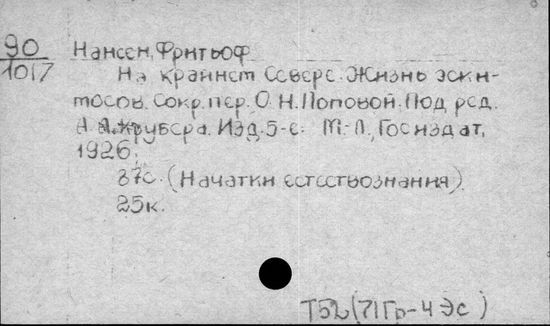 90
1017
Нансен, Фритьоф
На крайнем Севере. Жизнь эски-
мосов. Сокр. пер. О.Н. Поповой. Под ред.
А. Крубера. Изд. 5-е. М.-Л., Госиздат,
1926,
87с. (Начатки естествознания)
25к.
Т52(71Гр-4Эс)